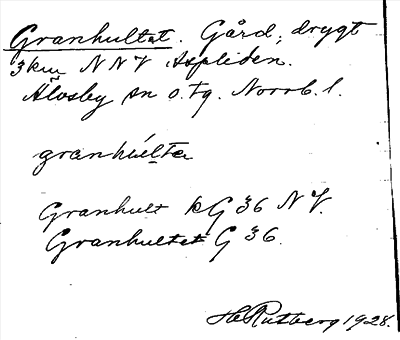 Granhultet. Gård, drygt
3 km NNV Aspliden.
Älvsby sn o. tg. Norrb. l.
granhúlta
Granhult kG 36 NV.
Granhultet G 36.
H Rutberg 1928.